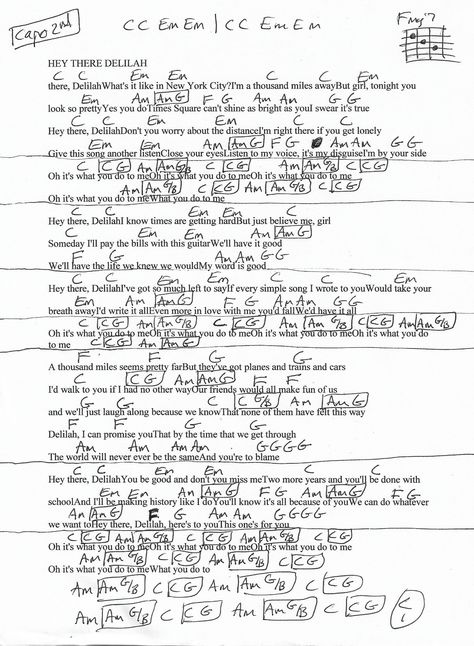 Capo 2nd
C C Em Em | C C Em Em
Fmaj7
HEY THERE DELILAH
C C Em Em C C Em
there, DelilahWhat's it like in New York City?I'm a thousand miles awayBut girl, tonight you
Em Am Am G F G Am Am G G
look so prettyYes you doTimes Square can't shine as bright as youI swear it's true
C C Em Em C C
Hey there, DelilahDon't you worry about the distanceI'm right there if you get lonely
Em Em Am Am G F G Am Am G G
Give this song another listenClose your eyesListen to my voice, it's my disguiseI'm by your side
C C G Am Am G C C G Am Am G/B C C G
Oh it's what you do to meOh it's what you do to meOh it's what you do to me
Am Am G/B C C G Am Am G/B C C G
Oh it's what you do to meWhat you do to me
C C Em Em C
Hey there, DelilahI know times are getting hardBut just believe me, girl
C Em Em Am Am G
Someday I'll pay the bills with this guitarWe'll have it good
F G Am Am G G
We'll have the life we knew we wouldMy word is good
C C Em Em C C Em
Hey there, DelilahI've got so much left to sayIf every simple song I wrote to youWould take your
Em Am Am G F G Am Am G G
breath awayI'd write it allEven more in love with me you'd fallWe'd have it all
C C G Am Am G/B C C G Am Am G/B C C G Am Am G/B
Oh it's what you do to meOh it's what you do to meOh it's what you do to meOh it's what you do
C C G Am Am G
to me
F F G G
A thousand miles seems pretty farBut they've got planes and trains and cars
C C G Am Am G F F
I'd walk to you if I had no other wayOur friends would all make fun of us
G G C C G/B Am Am G
and we'll just laugh along because we knowThat none of them have felt this way
F F G G
Delilah, I can promise youThat by the time that we get through
Am Am Am Am G G G G
The world will never ever be the sameAnd you're to blame
C C Em Em C C
Hey there, DelilahYou be good and don't you miss meTwo more years and you'll be done with
Em Em Am Am G F G Am Am G F G
schoolAnd I'll be making history like I doYou'll know it's all because of youWe can do whatever
Am Am G F G Am Am G G G G
we want toHey there, Delilah, here's to youThis one's for you
C C G Am Am G/B C C G Am Am G/B C C G
Oh it's what you do to meOh it's what you do to meOh it's what you do to me
Am Am G/B C C G Am Am G/B C C G
Oh it's what you do to meWhat you do to
Am Am G/B C C G Am Am G/B C C G
Am Am G/B C C G Am Am G/B C C G C